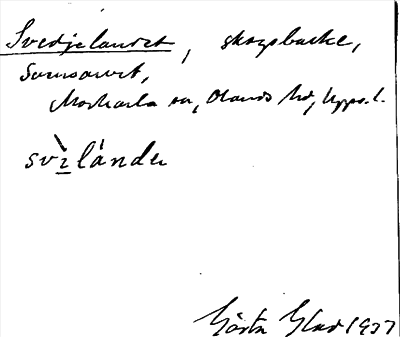 Svedjelandet, skogsbacke,
Sumsunet,
Morkarla sn, Olands hd, Upps. l.
svìlánde
Gösta Glad 1937